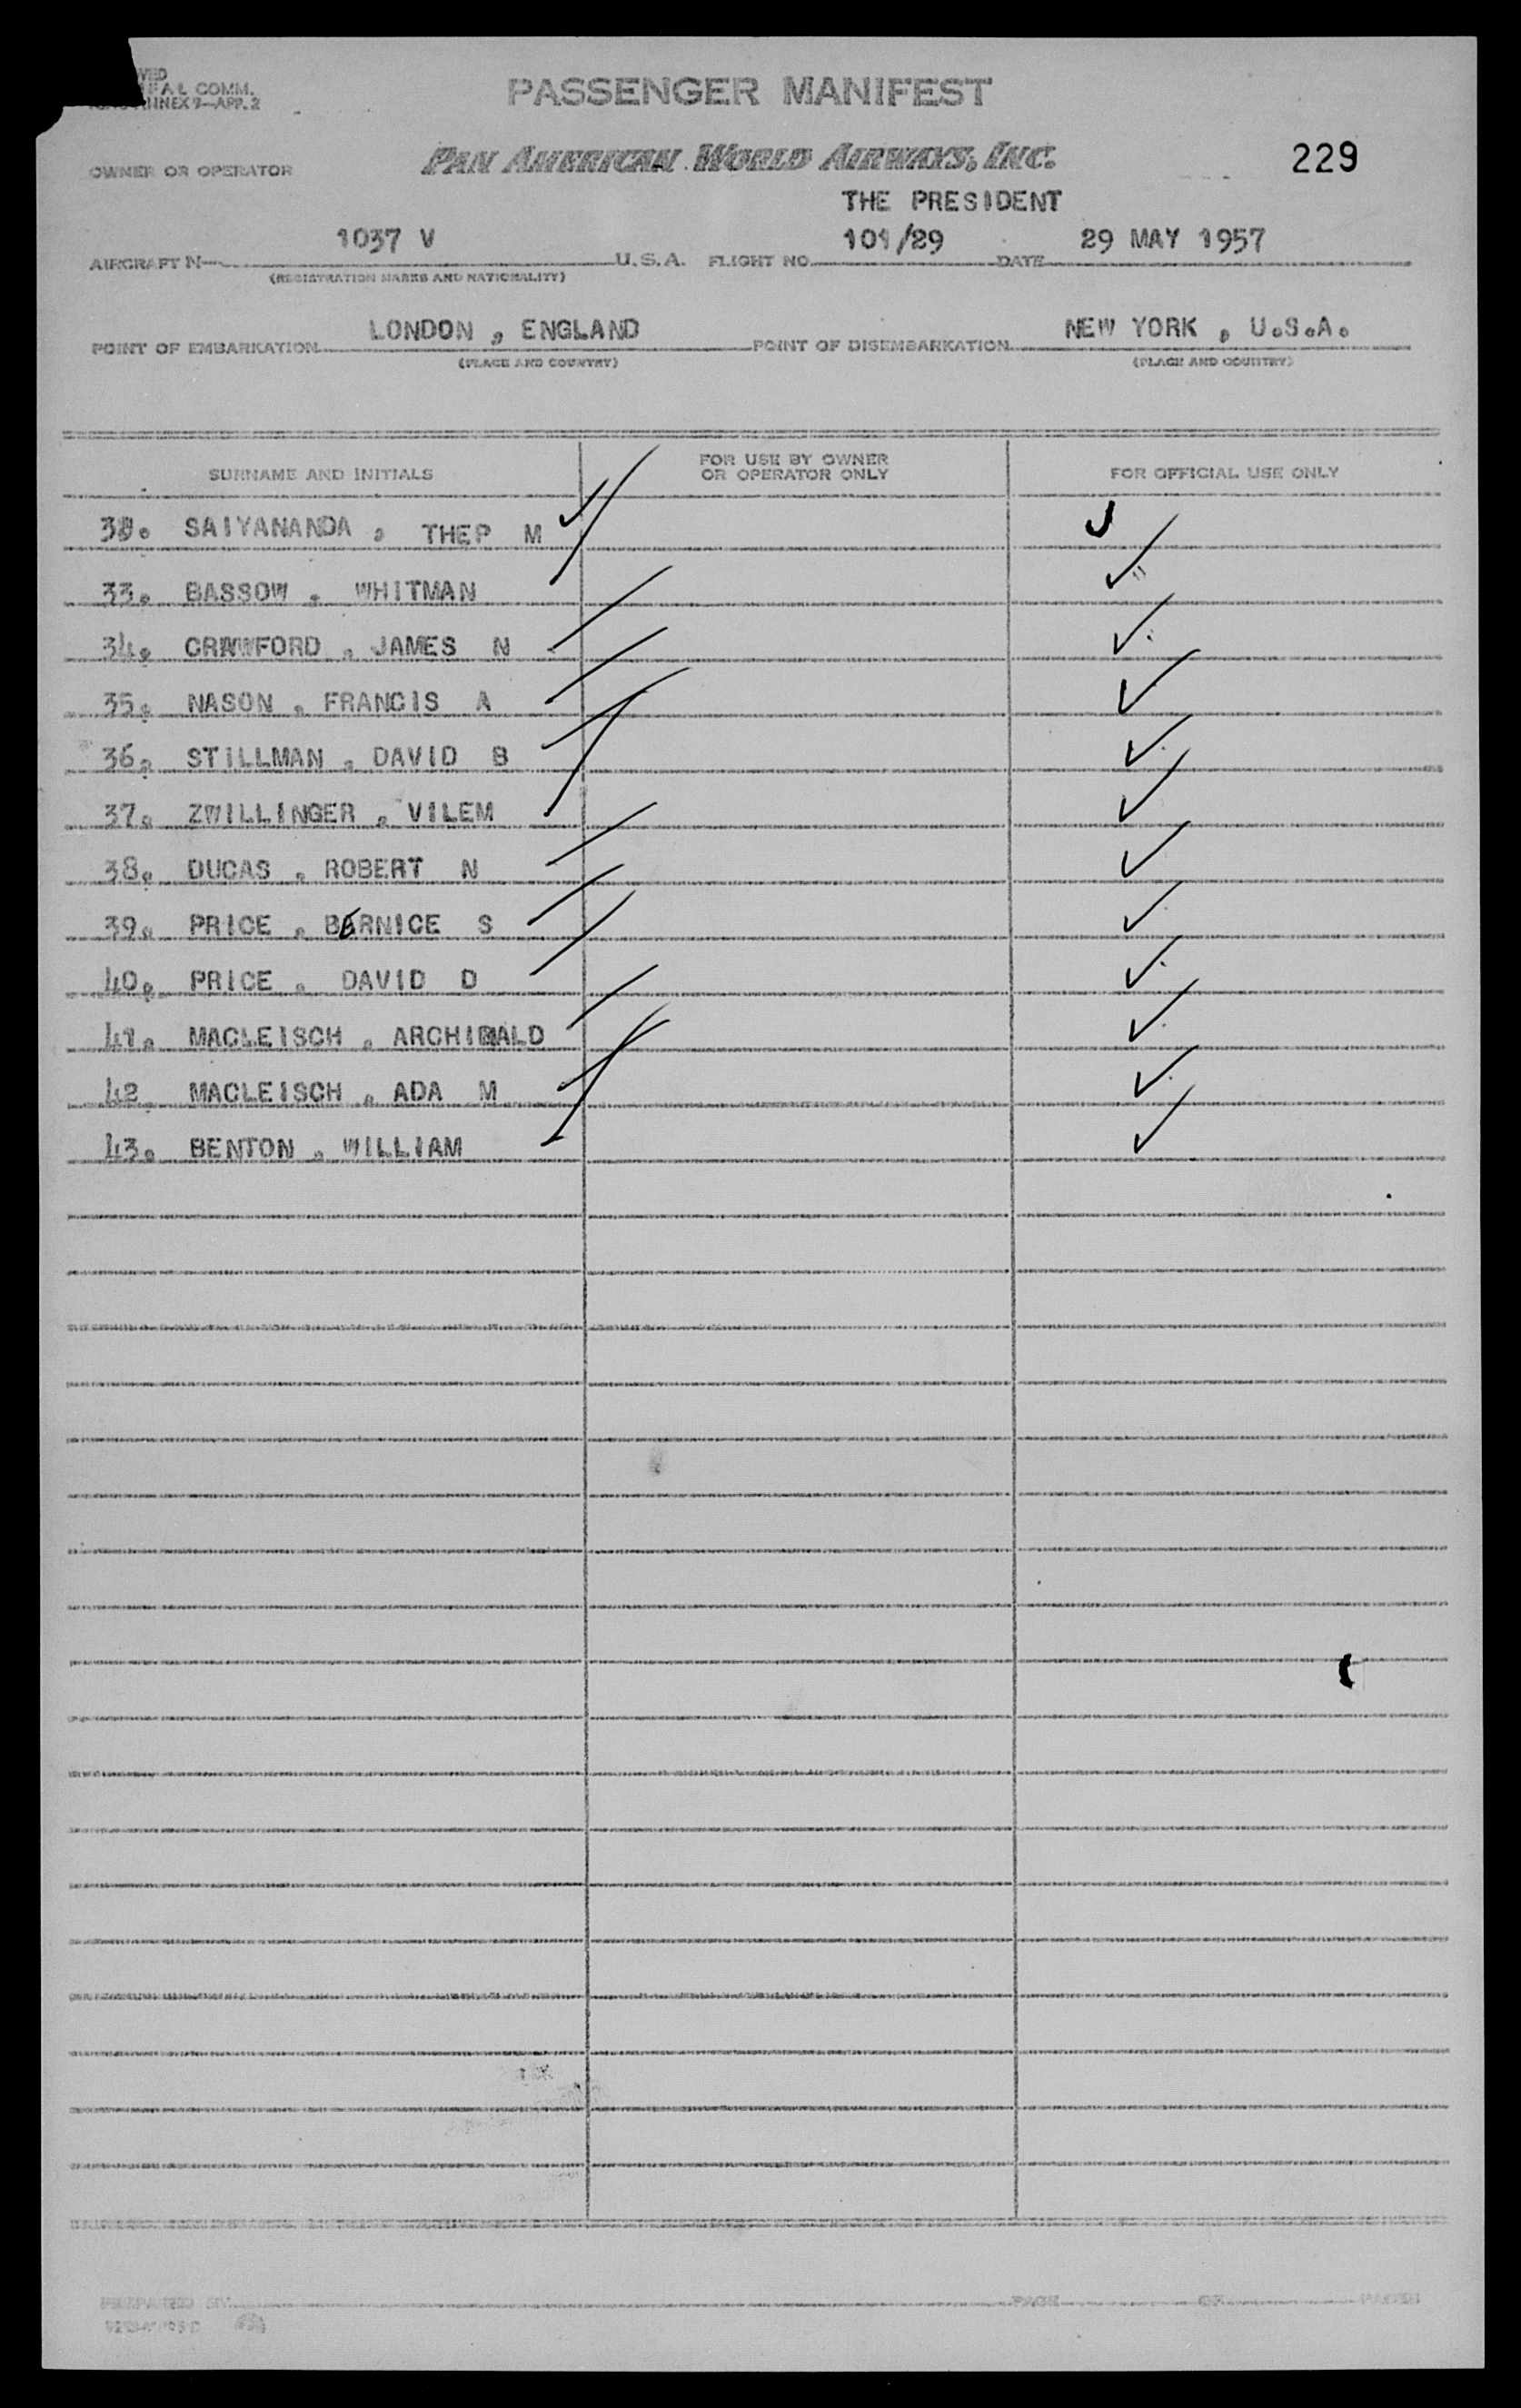 PASSENGER MANIFEST
OWNER OR OPERATOR PAN AMERICAN WORLD AIRWAYS, INC. 229
THE PRESIDENT
AIRCRAFT N 1037 V U.S.A. FLIGHT NO. 101/29 DATE 29 MAY 1957
(REGISTRATION MARKS AND NATIONALITY)
POINT OF EMBARKATION LONDON , ENGLAND POINT OF DISEMBARKATION NEW YORK , U.S.A.
(PLACE AND COUNTRY) (PLACE AND COUNTRY)
SURNAME AND INITIALS FOR USE BY OWNER OR OPERATOR ONLY FOR OFFICIAL USE ONLY
SAIYANANDA , THEP M
33. BASSOW , WHITMAN
34. CRAWFORD , JAMES N
35. NASON , FRANCIS A
36. STILLMAN , DAVID B
37. ZWILLINGER , VILEM
38. DUCAS , ROBERT N
39. PRICE , BERNICE S
40. PRICE , DAVID D
41. MACLEISCH , ARCHIBALD
42. MACLEISCH , ADA M
43. BENTON , WILLIAM
PREPARED BY PAGE OF PAGES